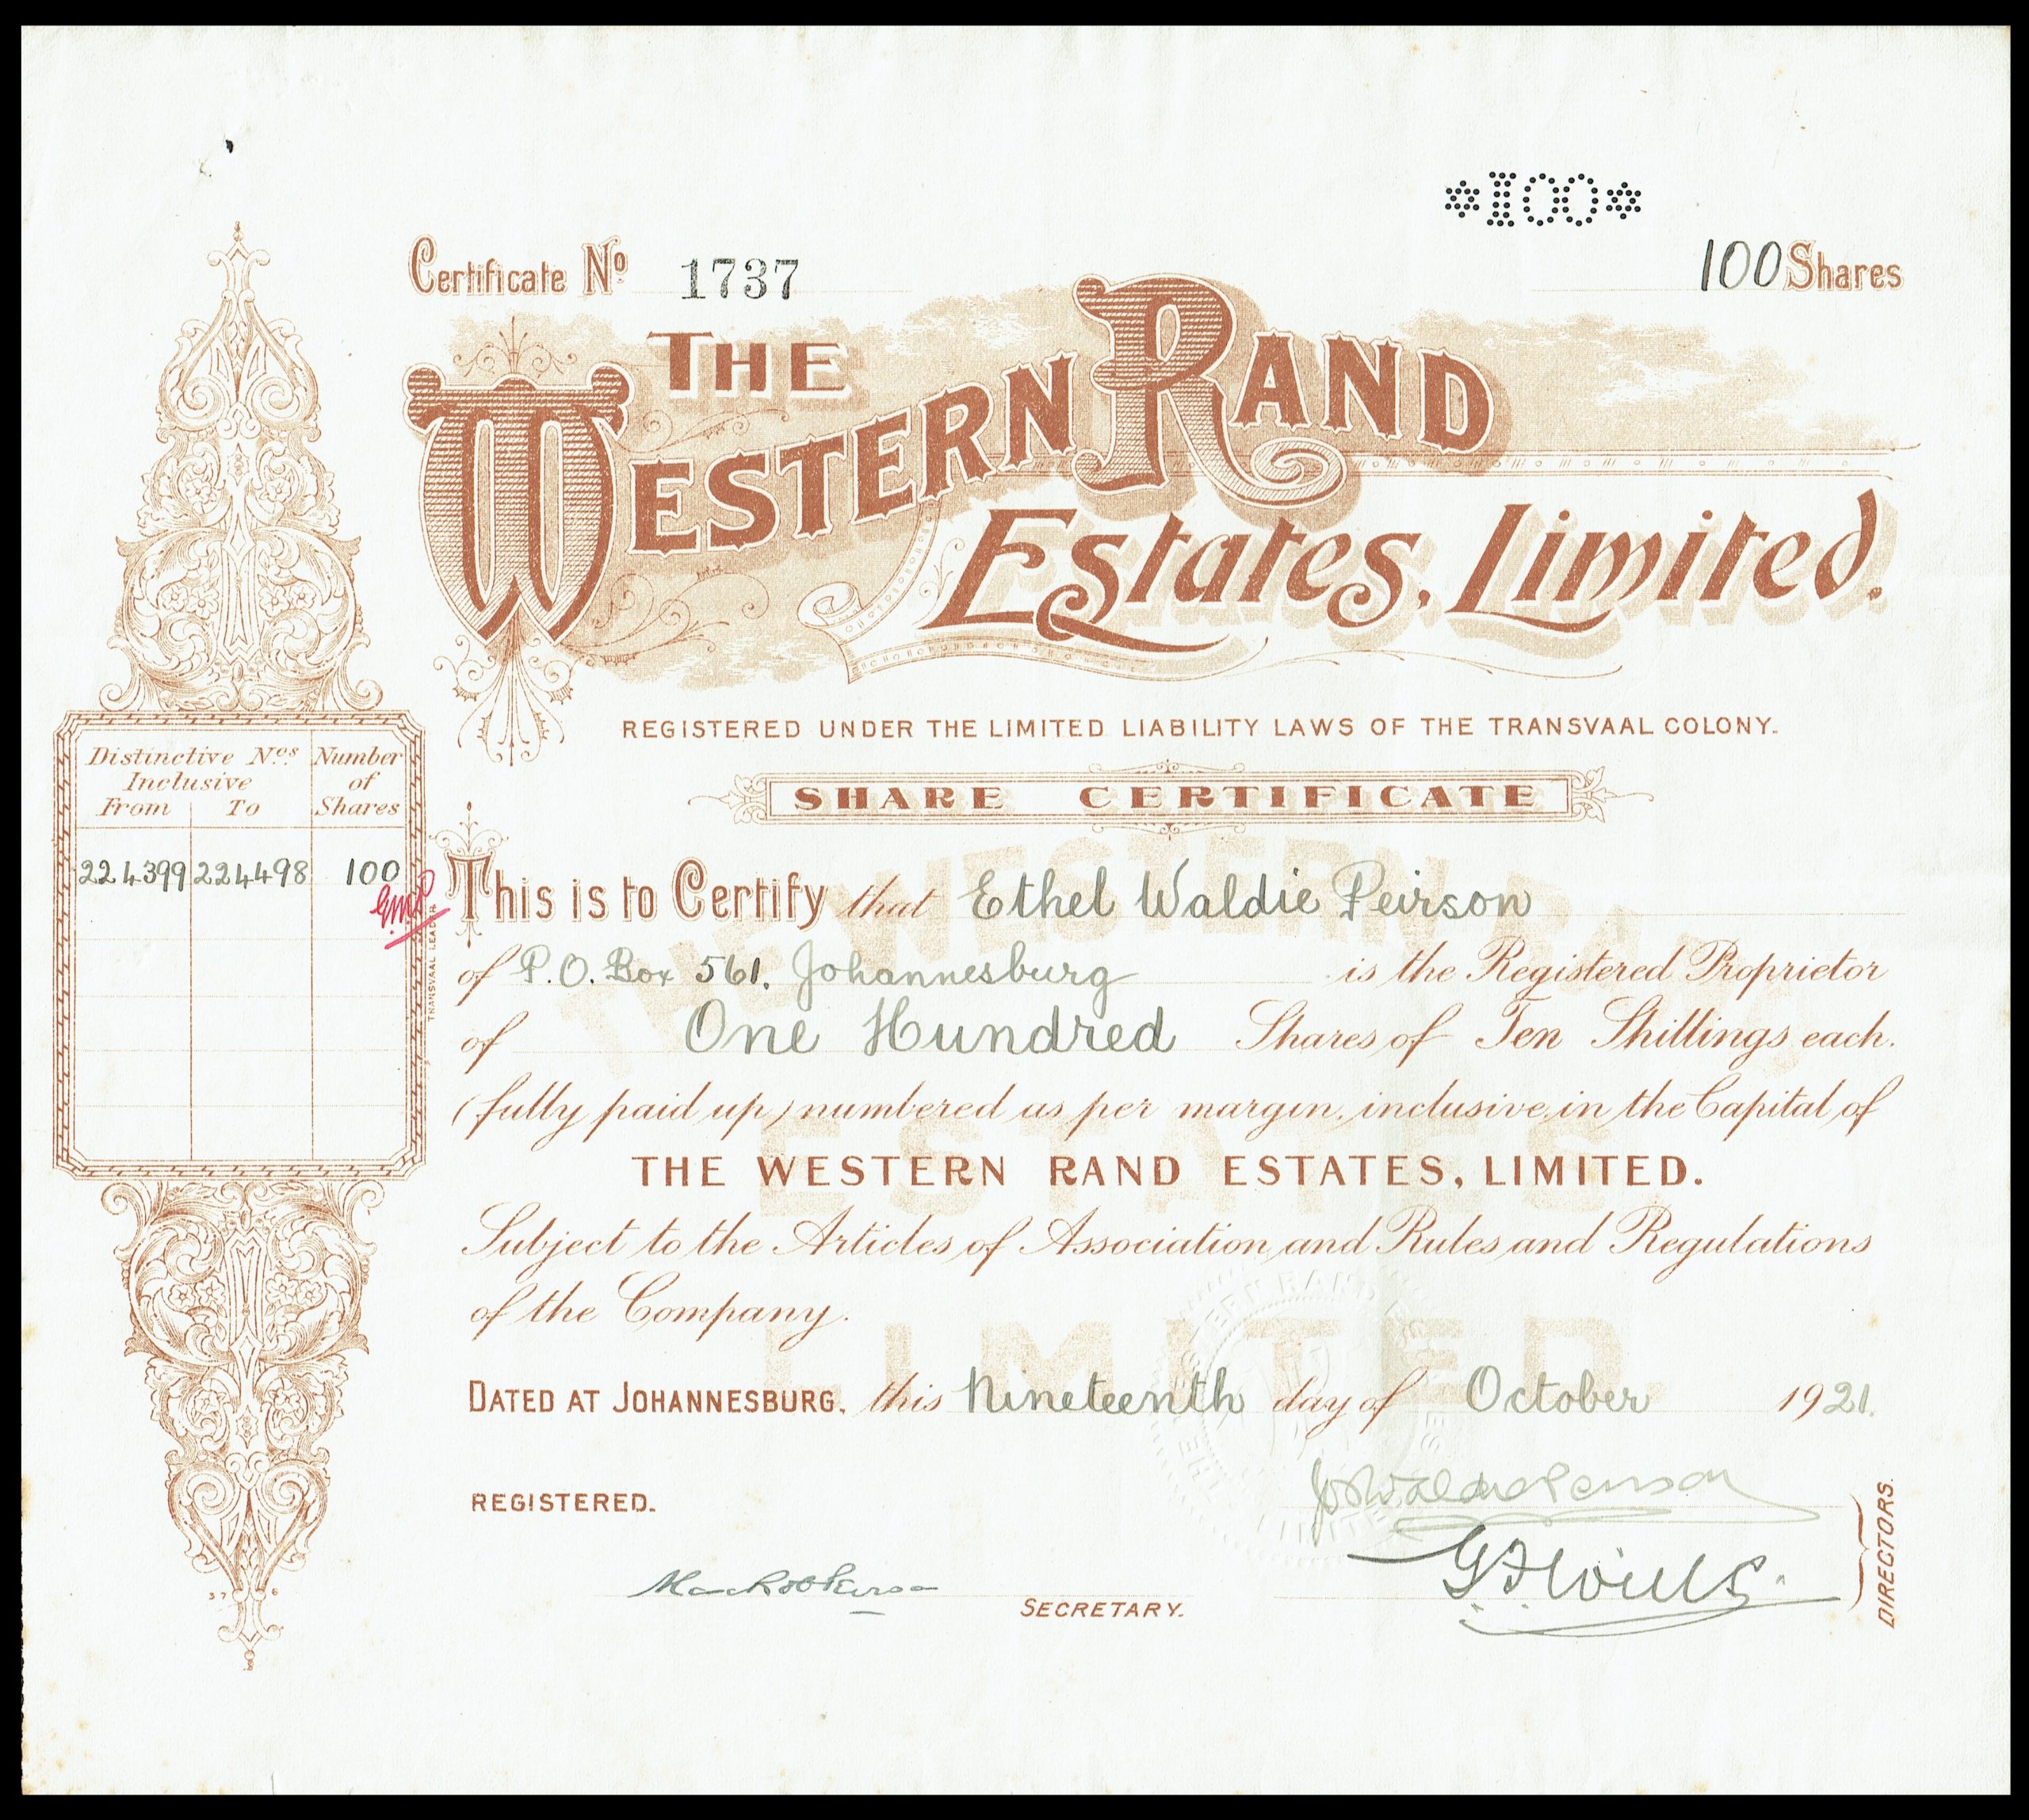 *100*
Certificate No 1737
100 Shares
THE
WESTERN RAND
Estates, Limited.
REGISTERED UNDER THE LIMITED LIABILITY LAWS OF THE TRANSVAAL COLONY.
SHARE CERTIFICATE
Distinctive Nos. Number
Inclusive of
From To Shares
224399 224498 100
TRANSVAAL LEADER
This is to Certify that Ethel Waldie Peirson
of P.O. Box 561, Johannesburg is the Registered Proprietor
of One Hundred Shares of Ten Shillings each.
(fully paid up) numbered as per margin, inclusive, in the Capital of
THE WESTERN RAND ESTATES, LIMITED.
Subject to the Articles of Association and Rules and Regulations
of the Company.
DATED AT JOHANNESBURG, this Nineteenth day of October 1921.
THE WESTERN RAND
ESTATES
LIMITED
REGISTERED.
SECRETARY.
DIRECTORS.